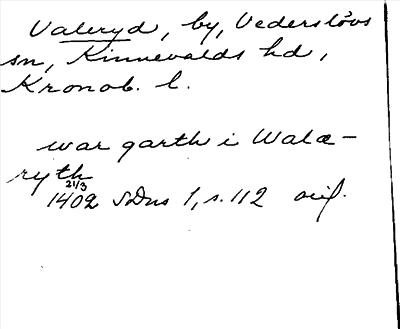 Valeryd, by, Vederslövs
sn, Kinnevalds hd,
Kronob. l.
war garth i Walæ-
ryth
21/3
1402 SDns 1, s. 112 orig.